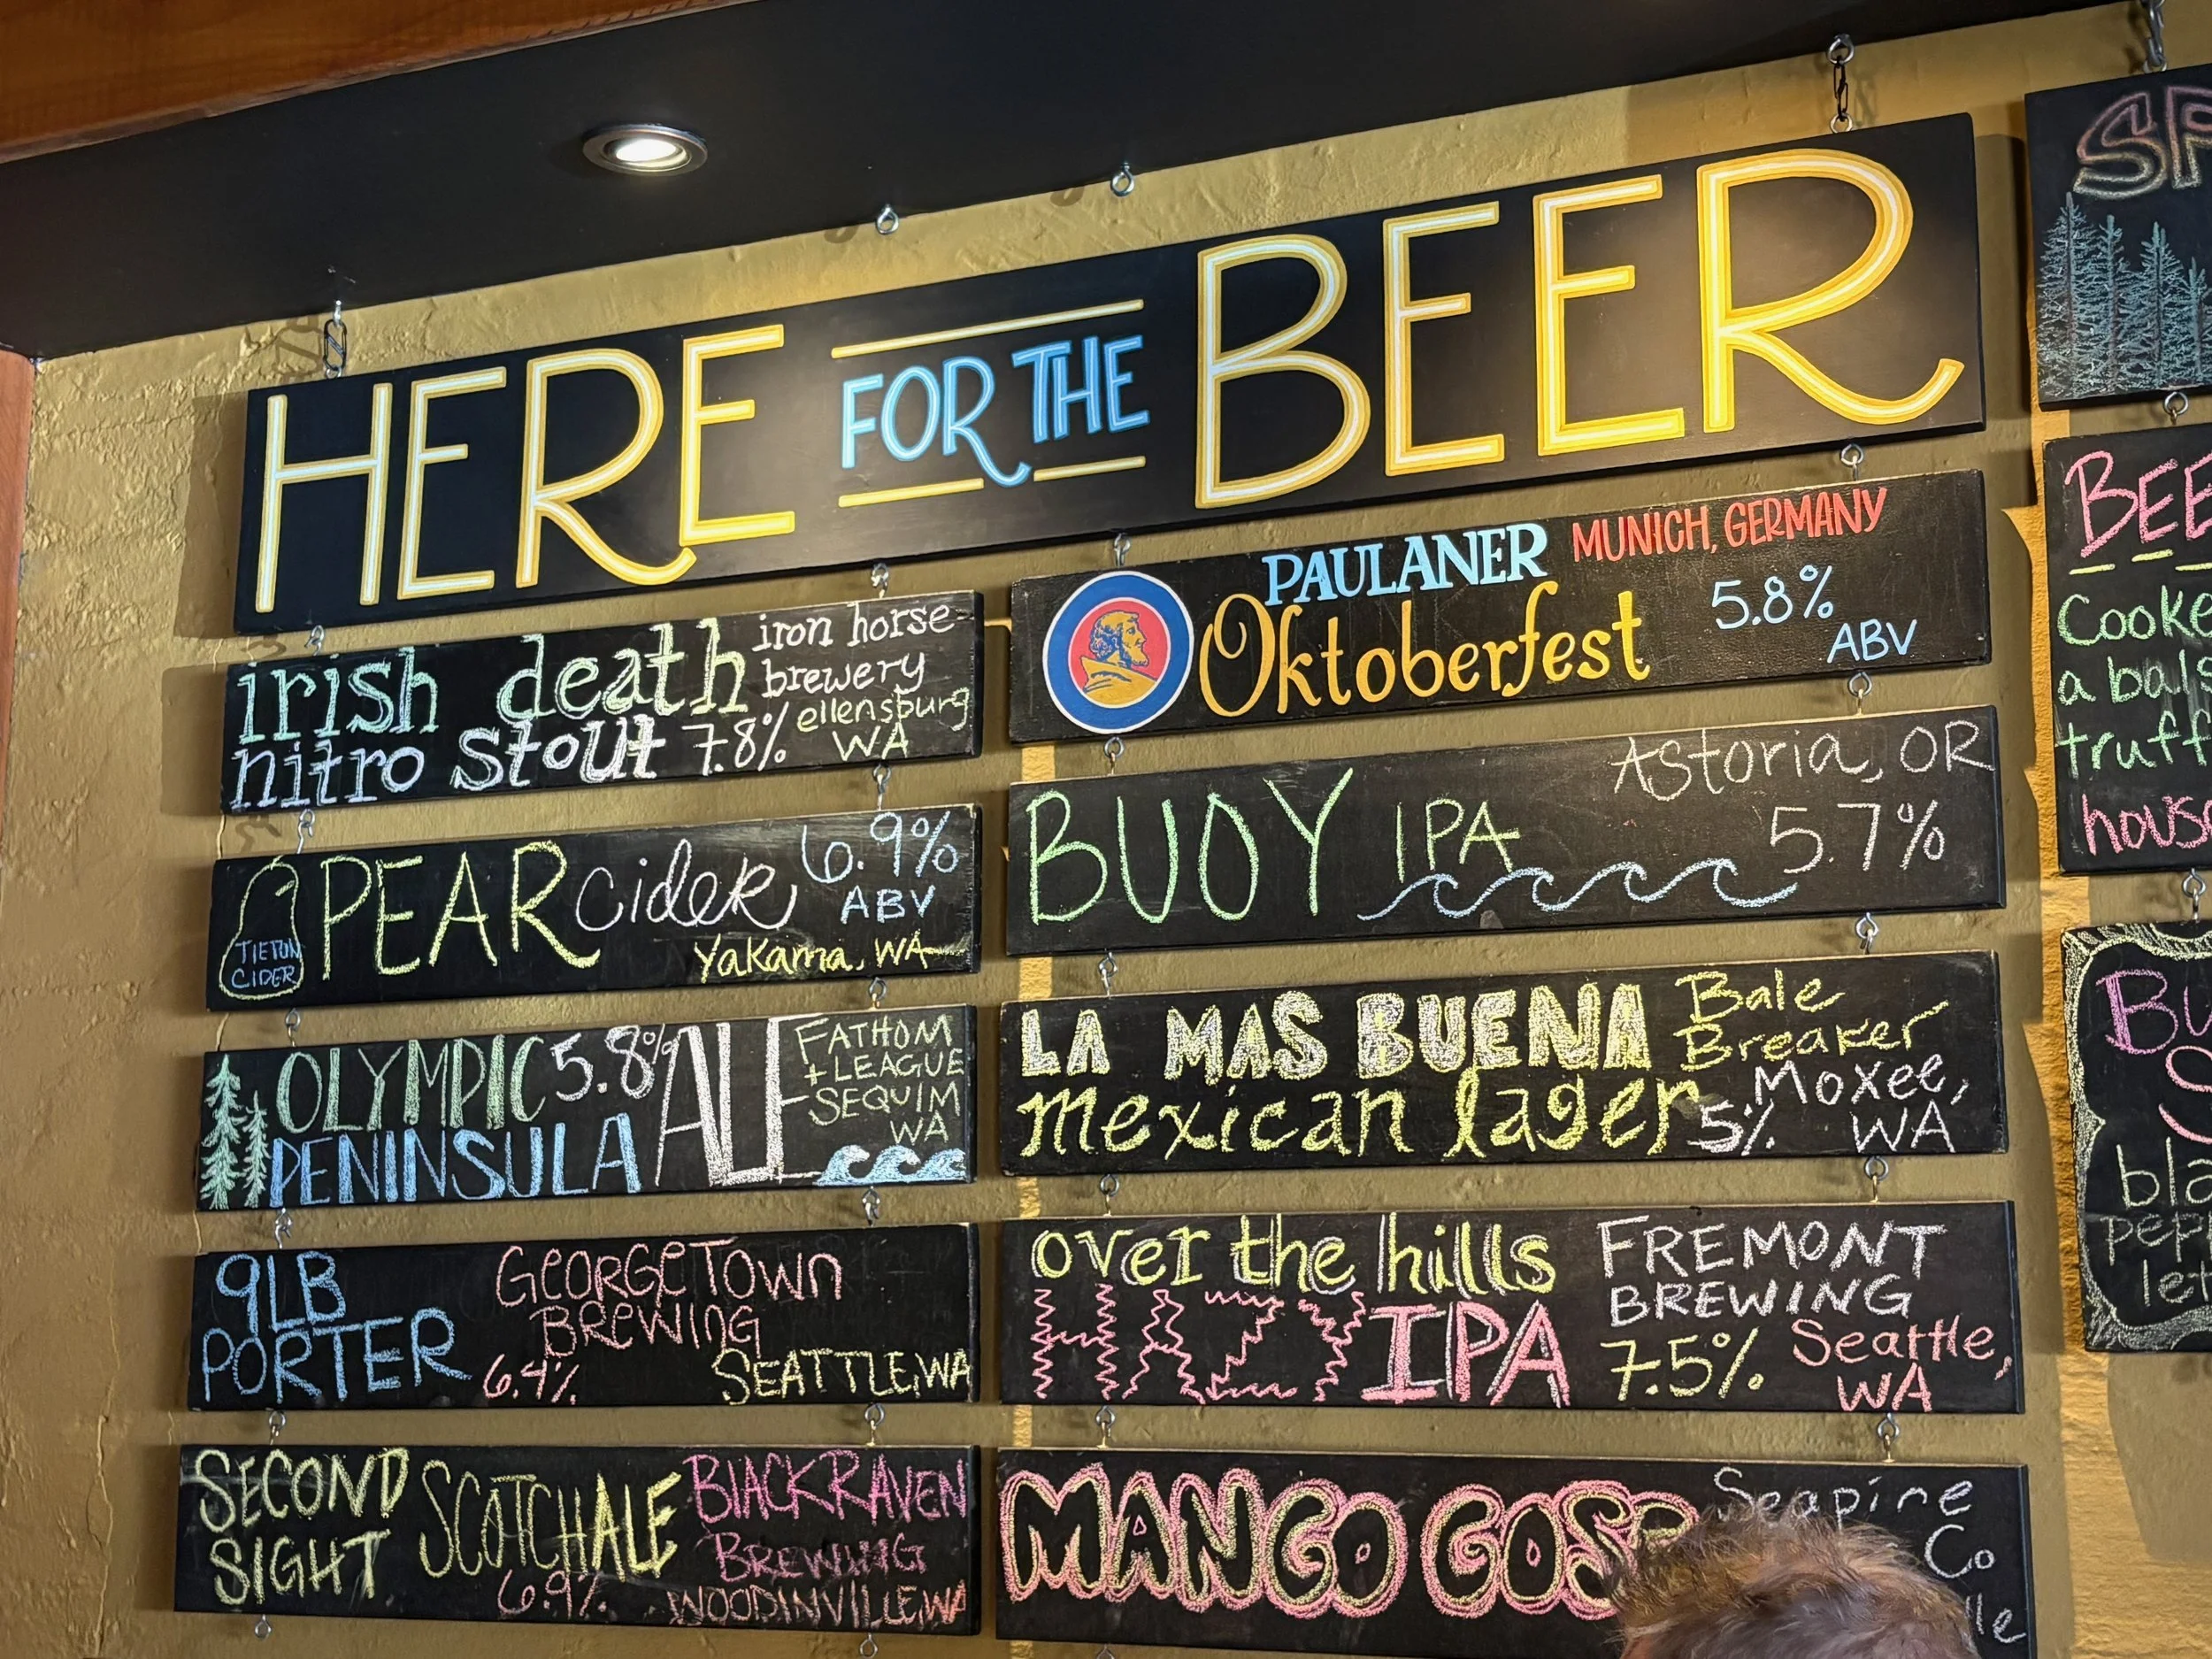 HERE FOR THE BEER
irish death
nitro stout 7.8%
iron horse
brewery
ellensburg
WA
TIETON
CIDER
PEAR cider
6.9%
ABV
Yakama, WA
OLYMPIC 5.8%
PENINSULA
ALE
FATHOM
+ LEAGUE
SEQUIM
WA
9LB
PORTER
GEORGETOWN
BREWING
6.4%
SEATTLE, WA
SECOND
SIGHT
SCOTCH ALE
6.9%
BLACK RAVEN
BREWING
WOODINVILLE, WA
PAULANER MUNICH, GERMANY
Oktoberfest
5.8%
ABV
BUOY IPA
Astoria, OR
5.7%
LA MAS BUENA
mexican lager
Bale
Breaker
5%
Moxee,
WA
over the hills
HAZY IPA
FREMONT
BREWING
7.5%
Seattle,
WA
MANGO GOSE
Seapine
Co
SP
BEE
Cooke
a bals
truff
house
Bu
S
bla
pepp
let